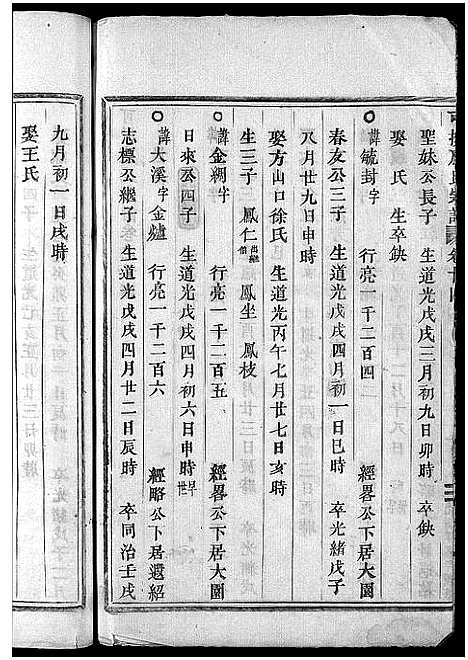 聖妹公長子　生道光戊戌三月初九日卯時　卒缺
娶　氏　生卒缺
諱毓封字　行亮一千二百四　經畧公下居大園
春友公三子　生道光戊戌四月初一日巳時　卒光緒戊子
八月廿九日申時
娶方山口徐氏　生道光丙午七月廿七日亥時
生三子　鳳仁出繼　鳳坐　鳳枝
諱金綢字　行亮一千二百五　經畧公下居大園
日來公四子　生道光戊戌四月初六日申時　早世
諱大溪字金爐　行亮一千二百六　經略公下居遺紹
志標公繼子　生道光戊戌四月廿二日辰時　卒同治壬戌
九月初一日戌時
娶王氏